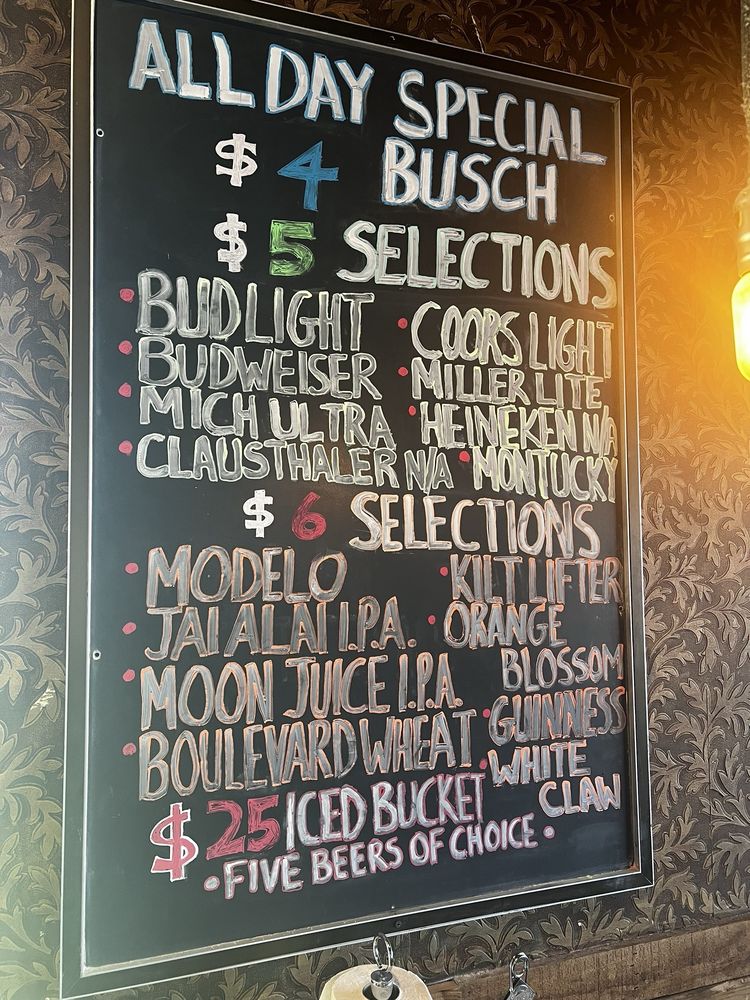 ALL DAY SPECIAL
$4 BUSCH
$5 SELECTIONS
• BUD LIGHT • COORS LIGHT
• BUDWEISER • MILLER LITE
• MICH ULTRA • HEINEKEN N/A
• CLAUSTHALER N/A • MONTUCKY
$6 SELECTIONS
• MODELO • KILT LIFTER
• JAI ALAI I.P.A. • ORANGE
BLOSSOM
• MOON JUICE I.P.A. • GUINNESS
• BOULEVARD WHEAT • WHITE
CLAW
$25 ICED BUCKET
• FIVE BEERS OF CHOICE •